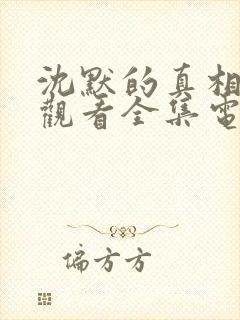 沈默的真相
觀看全集電
偏方方